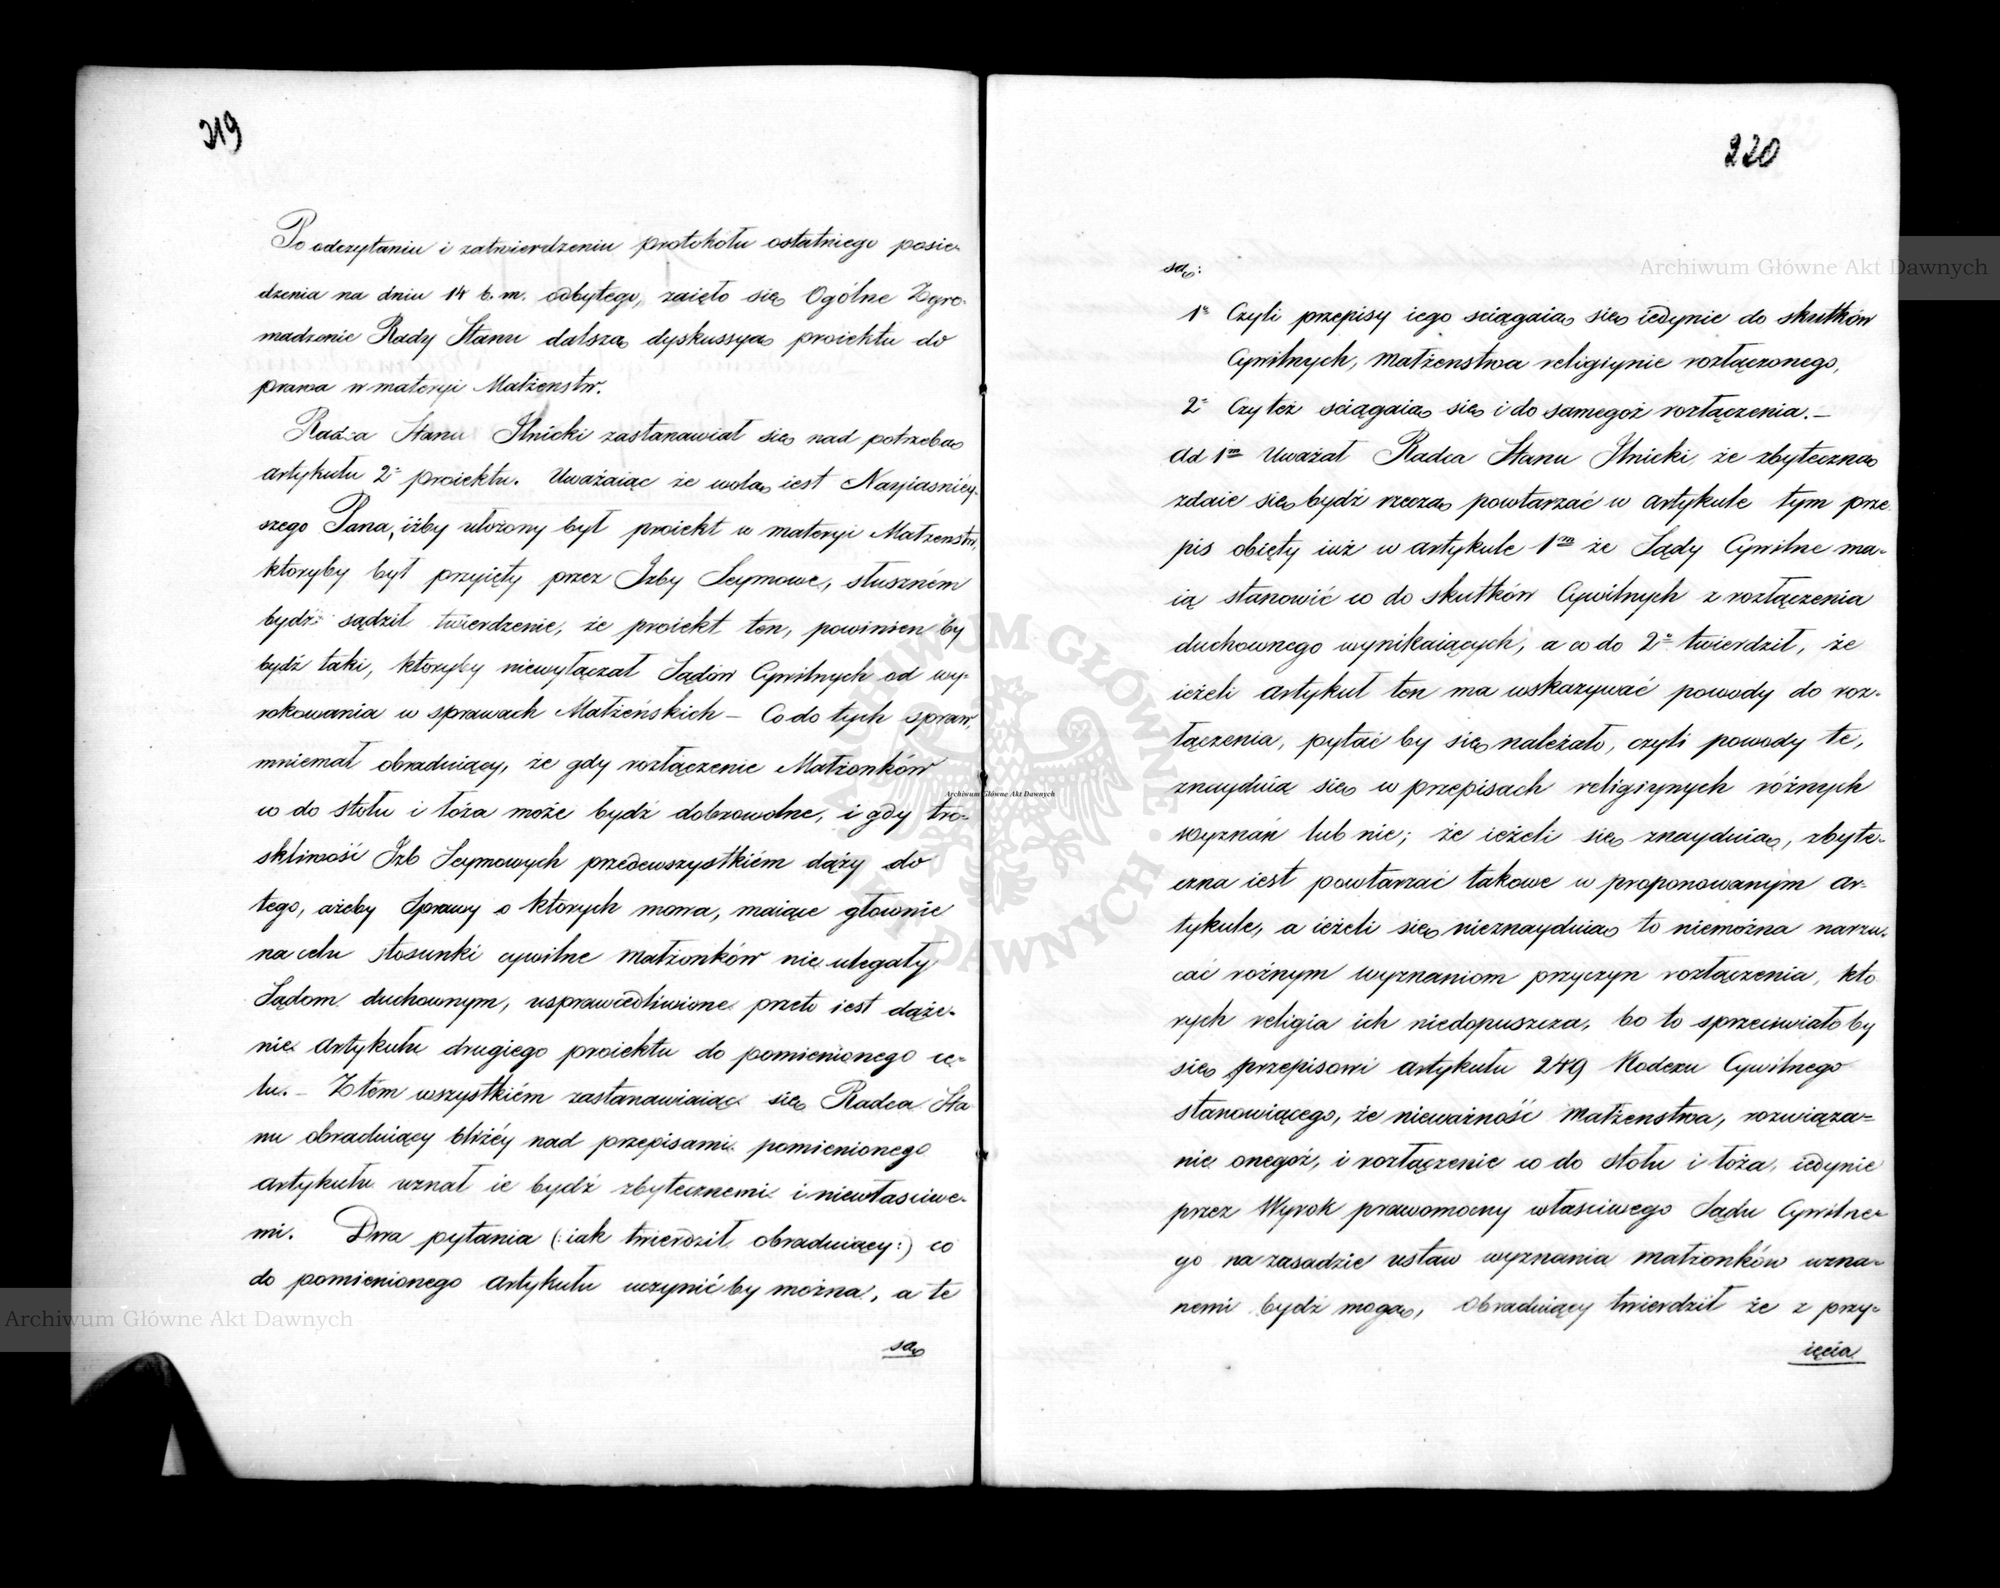 219
Po odczytaniu i zatwierdzeniu protokołu ostatniego posie-
dzenia na dniu 14 b. m. odbytego, zaięło się Ogólne Zgro-
madzenie Rady Stanu dalszą dyskussyą proiektu do
prawa w materyi Małżeństw.
Radca Stanu Ilnicki zastanawiał się nad potrzebą
artykułu 2º proiektu. Uważaiąc że wolą iest Nayiaśniéy-
szego Pana, iżby ułożony był proiekt w materyi Małzenstw,
ktoryby był przyięty przez Izby Seymowe, słuszném
bydź sądził twierdzenie, że proiekt ten, powinien by
bydź taki, ktoryby niewyłączał Sądów Cywilnych od wy-
rokowania w sprawach Małżeńskich – Co do tych spraw,
mniemał obraduiący, że gdy rozłączenie Małżonków
co do stołu i łóża może bydź dobrowolne, i gdy tro-
skliwość Izb Seymowych przedewszystkiém dąży do
tego, ażeby Sprawy o ktorych mowa, maiące głownie
na celu stosunki cywilne Małżonków nie ulegały
Sądom duchownym, usprawiedliwione przeto iest dąże-
nie Artykułu drugiego proiektu do pomienionego ce-
lu. – Z tém wszystkiém zastanawiaiąc się Radca Sta
nu obraduiący bliżéy nad przepisami pomienionego
artykułu uznał ie bydź zbytecznemi i niewłaściwe-
mi. Dwa pytania (: iak twierdził obraduiący :) co
do pomienionego Artykułu uczynić by można, a te
są
220
są:
1º Czyli przepisy iego sciągaią się iedynie do skutków
Cywilnych, Małżenstwa religiynie rozłączonego,
2º Czy też sciągaią się i do samegoż rozłączenia. –
Ad 1m Uważał Radca Stanu Ilnicki, że zbyteczną
zdaie się bydź rzeczą powtarzać w artykule tym prze
pis obięty iuż w artykule 1m że Sądy Cywilne ma-
ią stanowić co do skutków Cywilnych z rozłączenia
duchownego wynikaiących, a co do 2º twierdził, że
ieżeli artykuł ten ma wskazywać powody do roz-
łączenia, pytać by się należało, czyli powody te,
znayduią się w przepisach religiynych różnych
wyznań lub nie; że ieżeli się znayduią, zbyte-
czna iest powtarzać takowe w proponowanym ar-
tykule, a ieżeli się nieznayduią to niemożna narzu-
cać rożnym wyznaniom przyczyn rozłączenia, kto
rych religia ich niedopuszcza, bo to sprzeciwiało by
się przepisowi artykułu 249 Kodexu Cywilnego
stanowiącego, że nieważność Małżenstwa, rozwiąza-
nie onegoż, i rozłączenie co do stołu i łoża, iedynie
przez Wyrok prawomocny właściwego Sądu Cywilne-
go na zasadzie ustaw wyznania Małżonków uzna-
nemi bydź mogą, Obraduiący twierdził że z przy-
ięcia
Archiwum Główne Akt Dawnych
Archiwum Główne Akt Dawnych
Archiwum Główne Akt Dawnych
ARCHIWUM GŁÓWNE AKT DAWNYCH